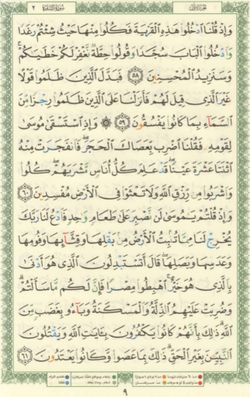 وَإِذْ قُلْنَا ادْخُلُوا هَٰذِهِ الْقَرْيَةَ فَكُلُوا مِنْهَا حَيْثُ شِئْتُمْ رَغَدًا
وَادْخُلُوا الْبَابَ سُجَّدًا وَقُولُوا حِطَّةٌ نَغْفِرْ لَكُمْ خَطَايَاكُمْ ۚ
وَسَنَزِيدُ الْمُحْسِنِينَ ٥٨ فَبَدَّلَ الَّذِينَ ظَلَمُوا قَوْلًا
غَيْرَ الَّذِي قِيلَ لَهُمْ فَأَنزَلْنَا عَلَى الَّذِينَ ظَلَمُوا رِجْزًا مِّنَ
السَّمَاءِ بِمَا كَانُوا يَفْسُقُونَ ٥٩ ۞ وَإِذِ اسْتَسْقَىٰ مُوسَىٰ
لِقَوْمِهِ فَقُلْنَا اضْرِب بِّعَصَاكَ الْحَجَرَ ۖ فَانفَجَرَتْ مِنْهُ
اثْنَتَا عَشْرَةَ عَيْنًا ۖ قَدْ عَلِمَ كُلُّ أُنَاسٍ مَّشْرَبَهُمْ ۖ كُلُوا
وَاشْرَبُوا مِن رِّزْقِ اللَّهِ وَلَا تَعْثَوْا فِي الْأَرْضِ مُفْسِدِينَ ٦٠
وَإِذْ قُلْتُمْ يَا مُوسَىٰ لَن نَّصْبِرَ عَلَىٰ طَعَامٍ وَاحِدٍ فَادْعُ لَنَا رَبَّكَ
يُخْرِجْ لَنَا مِمَّا تُنبِتُ الْأَرْضُ مِن بَقْلِهَا وَقِثَّائِهَا وَفُومِهَا
وَعَدَسِهَا وَبَصَلِهَا ۖ قَالَ أَتَسْتَبْدِلُونَ الَّذِي هُوَ أَدْنَىٰ
بِالَّذِي هُوَ خَيْرٌ ۚ اهْبِطُوا مِصْرًا فَإِنَّ لَكُم مَّا سَأَلْتُمْ ۗ
وَضُرِبَتْ عَلَيْهِمُ الذِّلَّةُ وَالْمَسْكَنَةُ وَبَاءُوا بِغَضَبٍ مِّنَ
اللَّهِ ۗ ذَٰلِكَ بِأَنَّهُمْ كَانُوا يَكْفُرُونَ بِآيَاتِ اللَّهِ وَيَقْتُلُونَ
النَّبِيِّينَ بِغَيْرِ الْحَقِّ ۗ ذَٰلِكَ بِمَا عَصَوا وَّكَانُوا يَعْتَدُونَ ٦١
٩